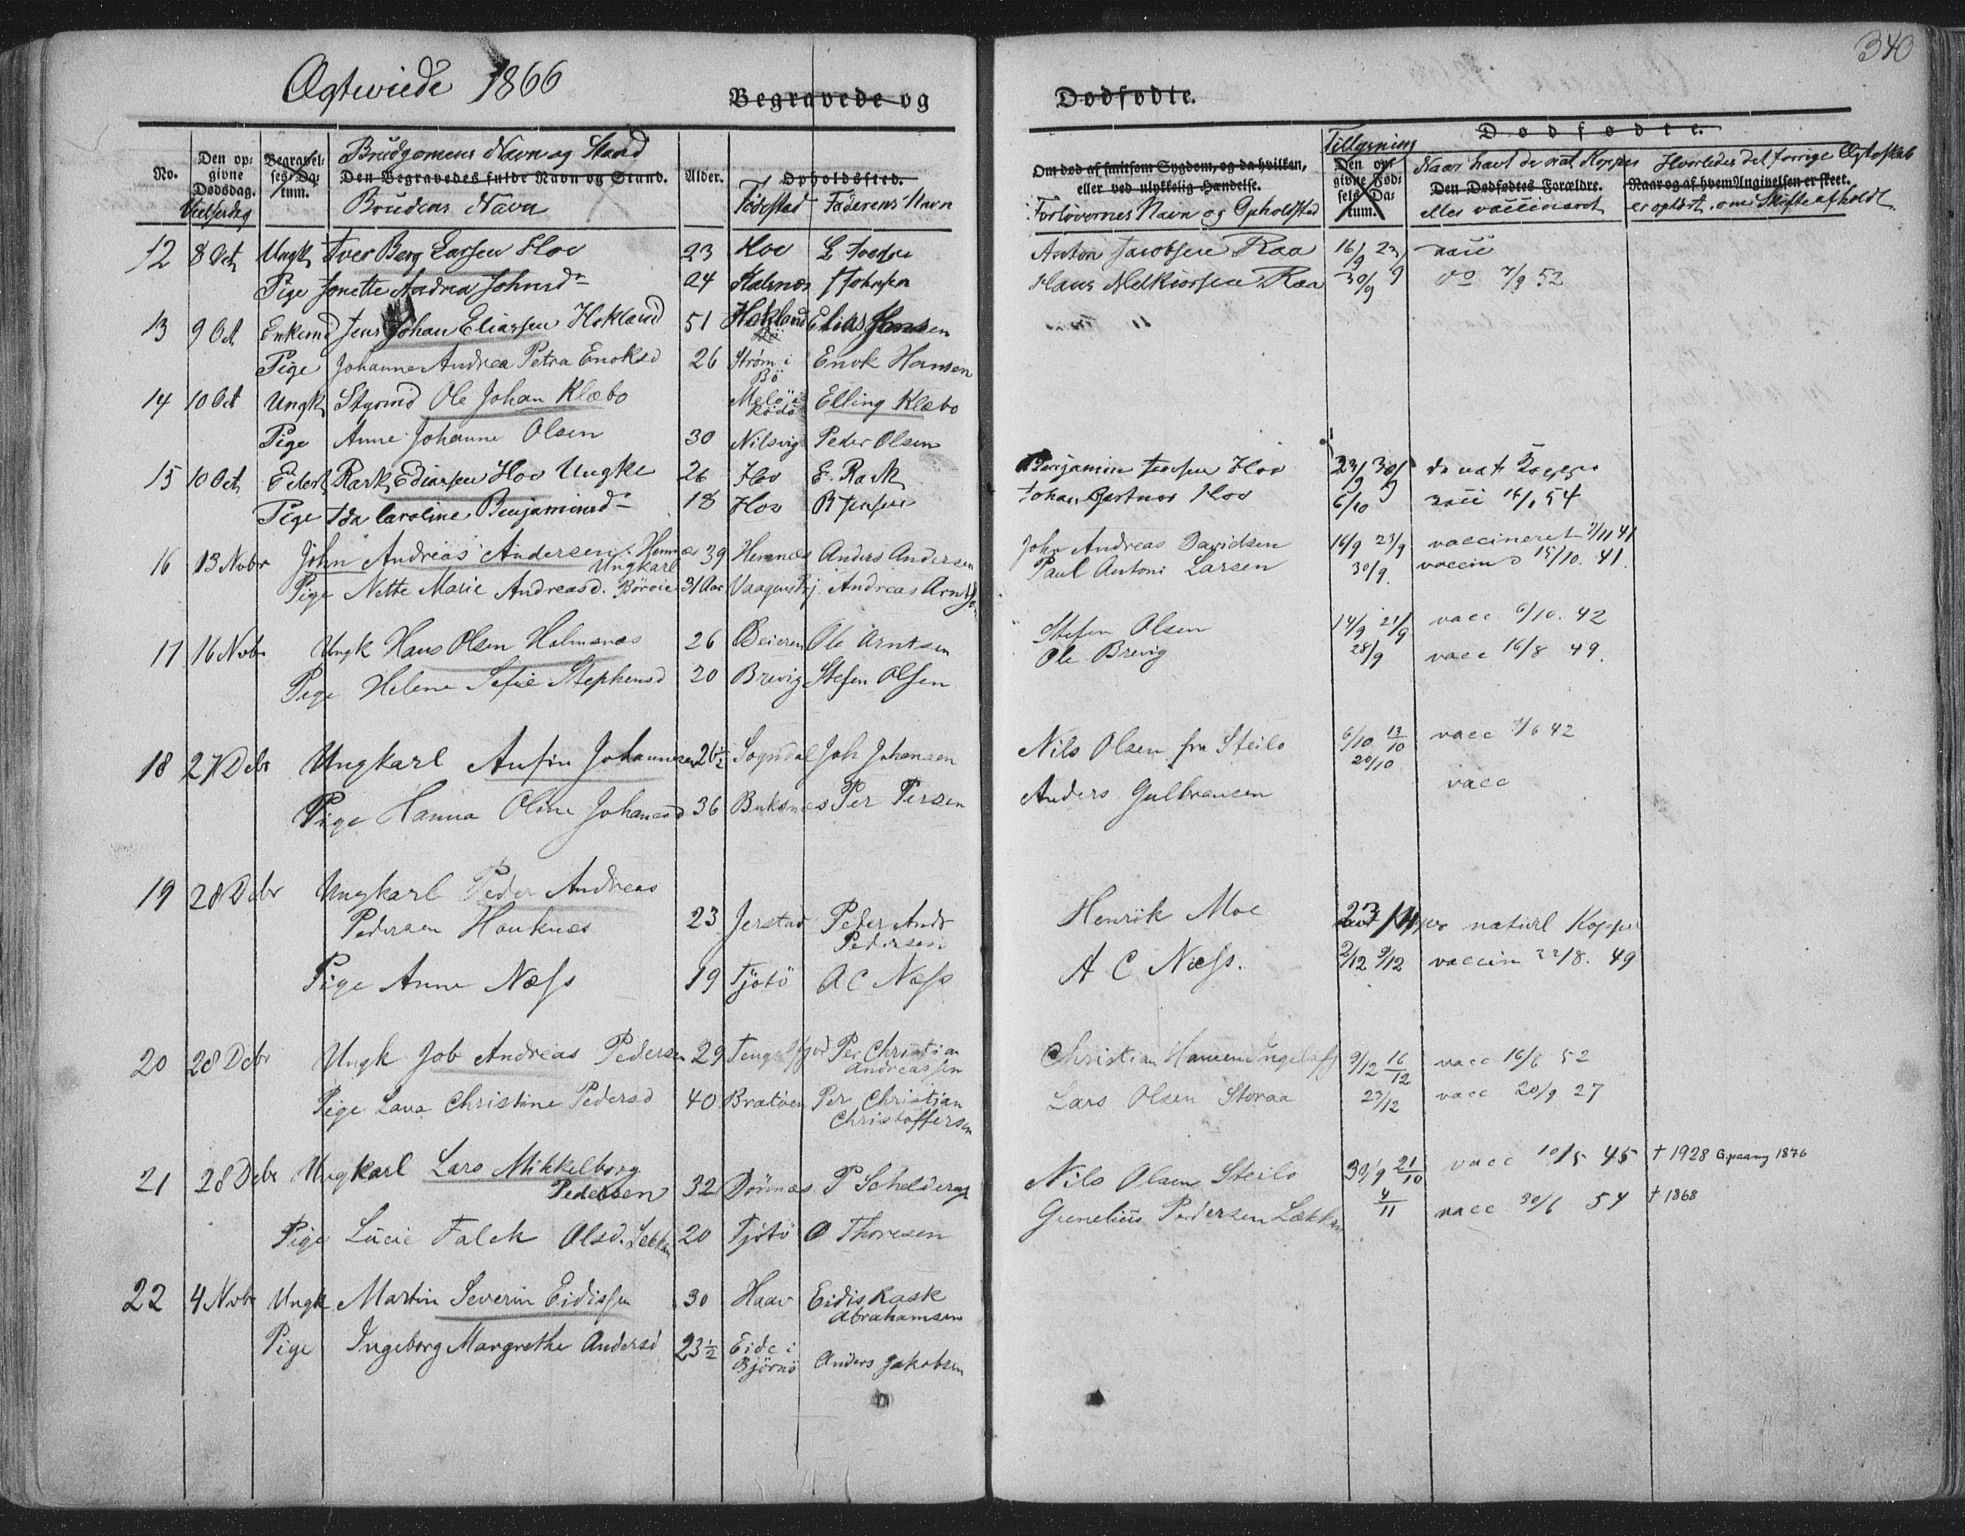 340
Ægteviede 1866
Begravede og Dødfødte.
No.
Den opgivne Dødsdag.
Vielsesdag
Begravelsesdatum.
Brudgomens Navn og Stand
Den Begravedes fulde Navn og Stand.
Brudens Navn
Alder.
Opholdssted.
Fødestad Faderens Navn
Om død af smitsom Sygdom, og da hvilken, eller ved ulykkelig Hændelse.
Forlovernes Navn og Opholdsted
Tillysning
Den opgivne Fødselsdatum.
Dødfødte.
Naar havt de nat. Kopper
Den Dødfødtes Forældre.
eller vaccineret
Hvorledes det forrige Ægteskab
Naar og af hvem Angivelsen er skeet.
er ophørt, om Skifte afholdt.
12 8 Oct Ungk Iver Berg Larsen Hov 23 Hov Anton Jacobsen Raa 16/9 23/9 vacc
Pige Jonette Andrea Johnsd 24 Kalsnes J Johnsen Hans Melkiorsen Raa 30/9 do 7/9 52
13 9 Oct Enkemd Jens Johan Eliassen Hokland 51 Hokland Elias Jensen
Pige Johanne Andrea Petra Enoksd 26 Strøm i Bö Enok Hansen
14 10 Oct Ungk Styrmd Ole Johan Klæbo Melö i Rödö Elling Klæbo
Pige Anne Johanne Olsen 30 Nilsvig Peder Olsen
15 10 Oct Eilert Rask Ediassen Hov Ungke 26 Hov E. Rask Benjamin Jensen Hov 23/9 30/9 do nat Kopper
Pige Ida Caroline Benjaminsd 18 Hov B Jensen Johan Gestnes Hov 6/10 vacc 54
16 13 Novbr John Andreas Andersen Hemnæs Ungkarl 39 Hemnæs Anders Andersen John Andreas Davidsen 16/9 23/9 vaccineret 7/11 41
Pige Nette Marie Andreasd. Börøie 31 Aar Vaagenskj. Andreas Arntsen Paul Antoni Larsen 30/9. vaccind 15/10. 41.
17 16 Novbr Ungk Hans Olsen Holmenæs 26 Beieren Ole Arntsen Stefen Olsen 14/9 21/9 vacc 6/10. 42
Pige Helene Sefie Stephensd 20 Brevig Stefen Olsen Ole Brevig 28/9 vacc 16/8 49.
18 27 Debr Ungkarl Anfin Johannesen 26½ Sogndal Joh Johansen Nils Olsen fra Steilo 6/10 13/10 20/10 vacc 7/6 42
Pige Hanna Oline Johansd 36 Buksnæs Per Persen Anders Gulbransen vacc
19 28 Debr Ungkarl Peder Andreas
Pedersen Hauknæs 23 Jerstad Peder Andr Pedersen Henrik Moe 23/ naturl Kopper
Pige Anne Næss 19 Tjötö A C Næss A C Næss. 2/12 9/12 vaccin 22/8. 49
20 28 Debr Ungk Job Andreas Pedersen 29 Per Christian Andreassen Christian Hansen 9/12 16/12 vacc 16/6 52
Pige Lava Christine Pedersd 40 Bratöen Per Christian Christoffersen Lars Olsen Storaa 23/12 vacc 20/9 27
21 28 Debr Ungkarl Lars Mikkelborg Pedersen 32 Dönnæs P Schelderup Nils Olsen Steilo 30/9 21/10 vacc 10/5 45 † 1928 1876
Pige Lucie Falck Olsd. Lekkan 20 Tjötö O Thoresen Gunelius Pedersen Lækkan 4/11 vacc 30/6 54 † 1868
22 4 Novbr Ungk Martin Severin Eidissen 30 Haav Eidis Rask Abrahamsen
Pige Ingeborg Margrethe Andersd 23½ Eide i Björnö Anders Jakobsen